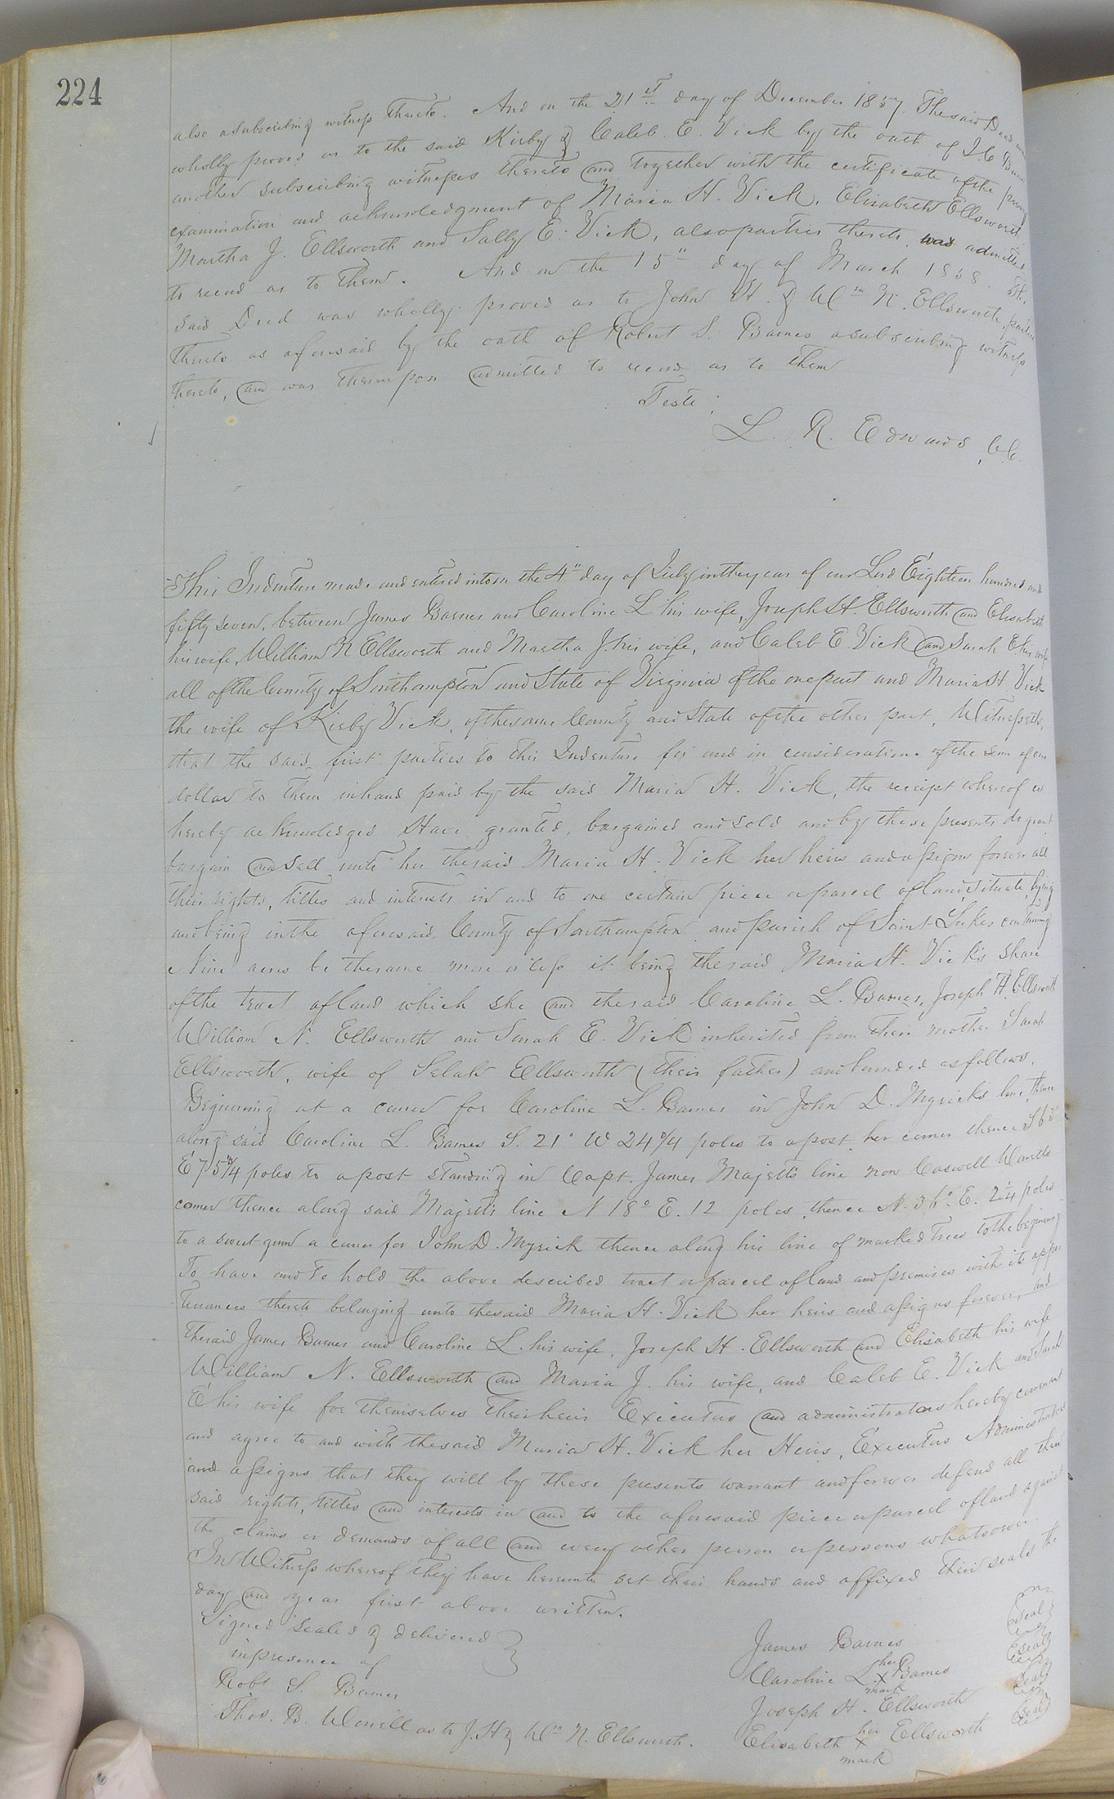 224
also a subscribing witness thereto. And on the 21st day of December 1857. The said Deed
wholly proved as to the said Kirby & Caleb E. Vick by the oath of
another subscribing witness thereto and together with the certificate of the privy
examination and acknowledgment of Maria H. Vick, Elizabeth Ellsworth
Martha J. Ellsworth and Sally E. Vick, also parties thereto was admitted
to record as to them. And on the 15" day of March 1858. The
said Deed was wholly proved as to John H. & Wm N. Ellsworth, parties
thereto as aforesaid by the oath of Robert S. Barnes a subscribing witness
thereto, and was thereupon admitted to record as to them
Teste;
L. R. Edwards, CC.
This Indenture made and entered into on the 4" day of July in the year of our Lord Eighteen hundred and
fifty seven, between James Barnes and Caroline L his wife, Joseph H Ellsworth and Elisabeth
his wife, William N Ellsworth and Martha J his wife, and Caleb E. Vick and Sarah E his wife
all of the County of Southampton and State of Virginia of the one part and Maria H. Vick
the wife of Kirby Vick, of the same County and State of the other part, Witnesseth,
that the said first parties to this Indenture for and in consideration of the sum of one
dollar to them in hand paid by the said Maria H. Vick, the receipt whereof is
hereby acknowledged Have granted, bargained and sold and by these presents do grant
bargain and sell unto her the said Maria H. Vick her heirs and assigns forever all
their rights, titles and interests in and to one certain piece or parcel of land, situate, lying
and being in the aforesaid County of Southampton and parish of Saint Lukes containing
Nine acres be the same more or less it being the said Maria H. Vick's share
of the tract of land which she and the said Caroline L. Barnes, Joseph H. Ellsworth
William N. Ellsworth and Sarah E. Vick inherited from their mother Sarah
Ellsworth, wife of Selah Ellsworth (their father) and bounded as follows.
Beginning at a corner for Caroline L. Barnes in John D. Myricks line, thence
along said Caroline L. Barnes S. 21° W 24 3/4 poles to a post her corner thence
E 75 3/4 poles to a post standing in Capt. James Majetts line now Caswell
corner thence along said Majetts line N 18° E. 12 poles, thence N. E. poles
to a sweet gum a corner for John D. Myrick thence along his line of marked trees to the beginning
To have and to hold the above described tract or parcel of land and premises with its appur
tenances thereto belonging unto the said Maria H. Vick her heirs and assigns forever, and
the said James Barnes and Caroline L. his wife, Joseph H. Ellsworth and Elisabeth his wife
William N. Ellsworth and Maria J. his wife, and Caleb E. Vick and Sarah
E his wife for themselves their heirs Executors and administrators hereby covenant
and agree to and with the said Maria H. Vick her Heirs, Executors Administrators
and assigns that they will by these presents warrant and forever defend all their
said rights, titles and interests in and to the aforesaid piece or parcel of land against
the claims or demands of all and every other person or persons whatsoever.
In Witness whereof they have hereunto set their hands and affixed their seals the
day and year first above written.
Signed sealed & delivered
in presence of
Robt S. Barnes
Thos. B. as to J. H & Wm N. Ellsworth.
James Barnes Seal
Caroline L. her x mark Barnes Seal
Joseph H. Ellsworth Seal
Elisabeth her x mark Ellsworth Seal